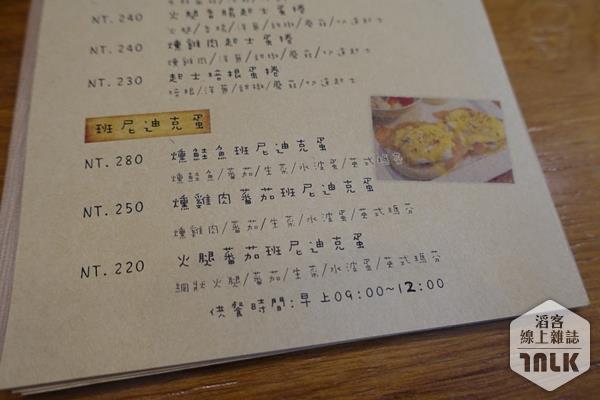 NT. 240 火腿香腸起士蛋捲
火腿/香腸/洋蔥/甜椒/蘑菇/切達起士
NT. 240 燻雞肉起士蛋捲
燻雞肉/洋蔥/甜椒/蘑菇/切達起士
NT. 230 起士培根蛋捲
培根/洋蔥/甜椒/蘑菇/切達起士
班尼迪克蛋
NT. 280 燻鮭魚班尼迪克蛋
燻鮭魚/蕃茄/生菜/水波蛋/英式瑪芬
NT. 250 燻雞肉蕃茄班尼迪克蛋
燻雞肉/蕃茄/生菜/水波蛋/英式瑪芬
NT. 220 火腿蕃茄班尼迪克蛋
網狀火腿/蕃茄/生菜/水波蛋/英式瑪芬
供餐時間:早上09:00~12:00
滔客
線上雜誌
TALK